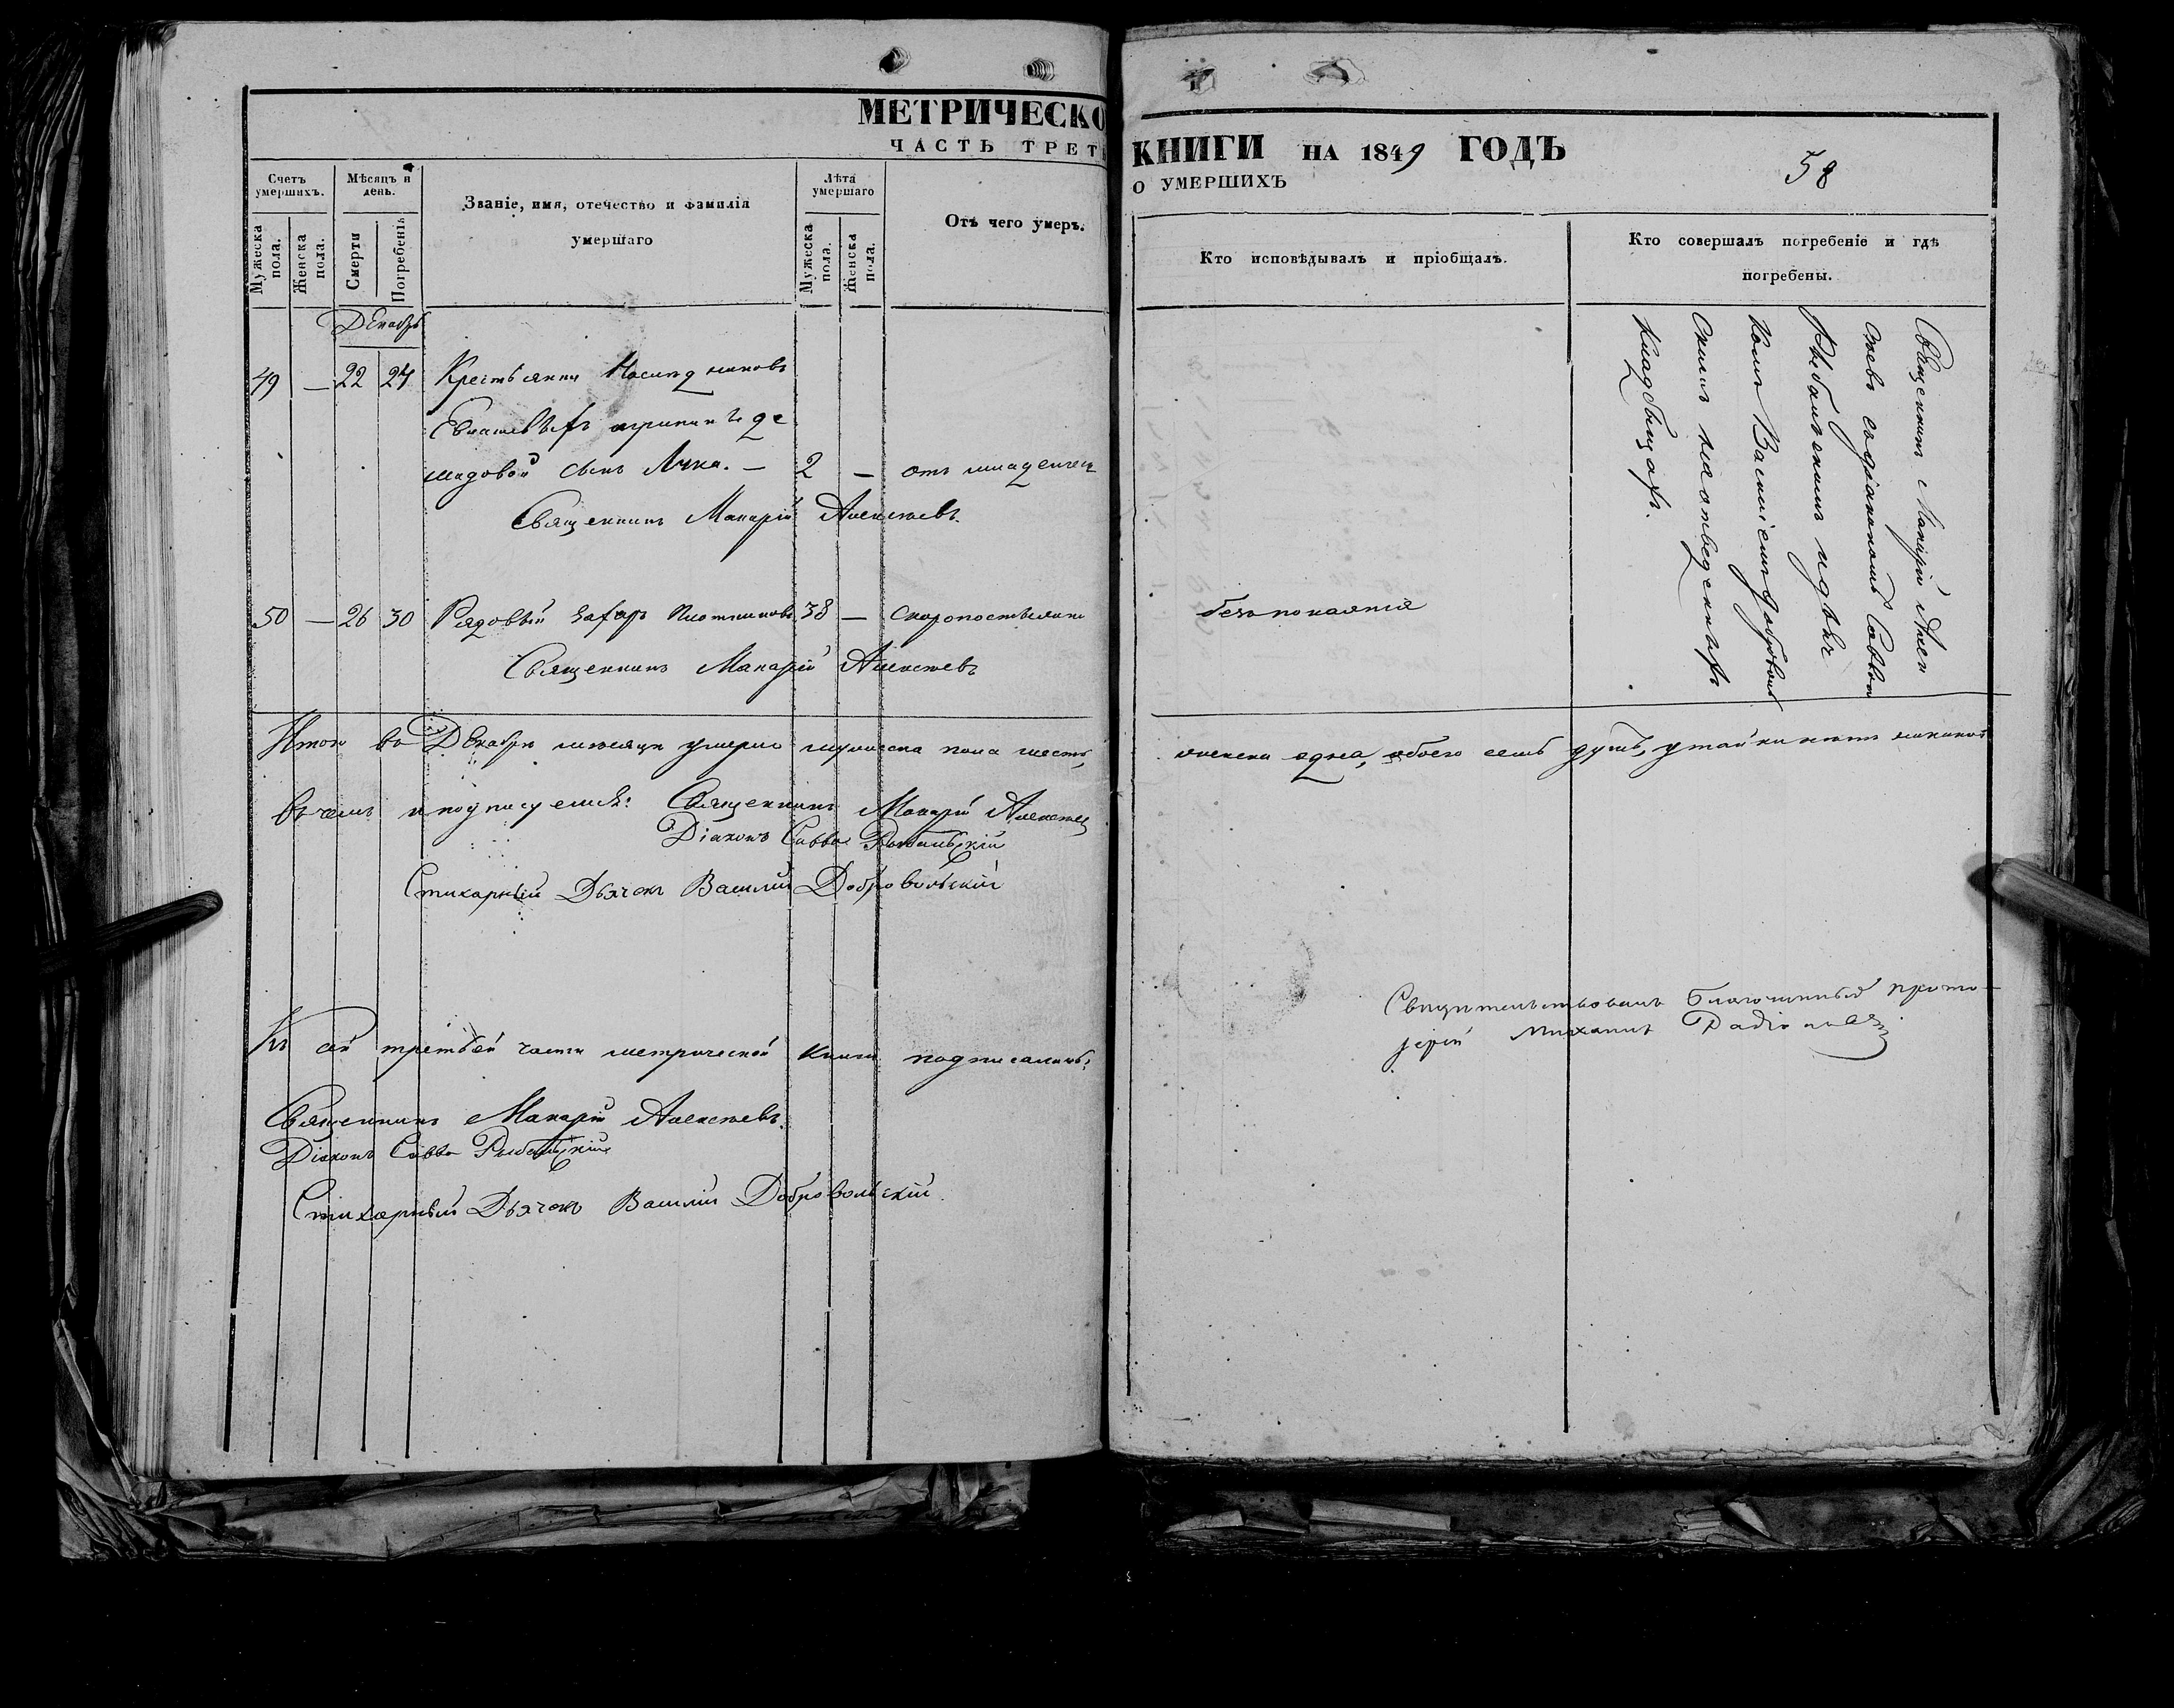 МЕТРИЧЕСКО
ЧАСТЬ ТРЕТ
Счетъ умершихъ.
Мѣсяцъ и день.
Званіе, имя, отечество и фамилія умершаго
Лѣта умершаго
Отъ чего умеръ.
Мужеска пола.
Женска пола.
Смерти
Погребенія
Мужеска пола.
Женска пола.
Декабрь
49 — 22 24 Крестьянки
сынъ 2 — отъ младенческ
Священникъ Макарій Алексѣевъ.
50 — 26 30 Рядовый Захаръ Плотниковъ 38 — Скоропостижно
Священникъ Макарій Алексѣевъ
Итого въ Декабрѣ мѣсяцѣ умерло мужеска пола шесть,
въ чемъ и подписуемся: Священникъ Макарій Алексѣев
Діаконъ Савва Рыбальскій
Стихарный Дьячекъ Василій Добровольскій
Къ сей третьей части метрической книги подписались:
Священникъ Макарій Алексѣевъ.
Діаконъ Савва Рыбальскій
Стихарный Дьячекъ Василій Добровольскій
КНИГИ НА 1849 ГОДЪ
О УМЕРШИХЪ
58
Кто исповѣдывалъ и пріобщалъ.
Кто совершалъ погребеніе и гдѣ погребены.
Священникъ Макарій Алек
сѣевъ съ діакономъ Саввою
Рыбальскимъ и дьяч
комъ Василіемъ Добровол
скимъ на отведенныхъ
кладбищахъ.
безъ покаянія
женска одна, обоего семь душъ, утайки нѣтъ никакой
Свидѣтельствовалъ Благочинный прото-
іерей Михаилъ